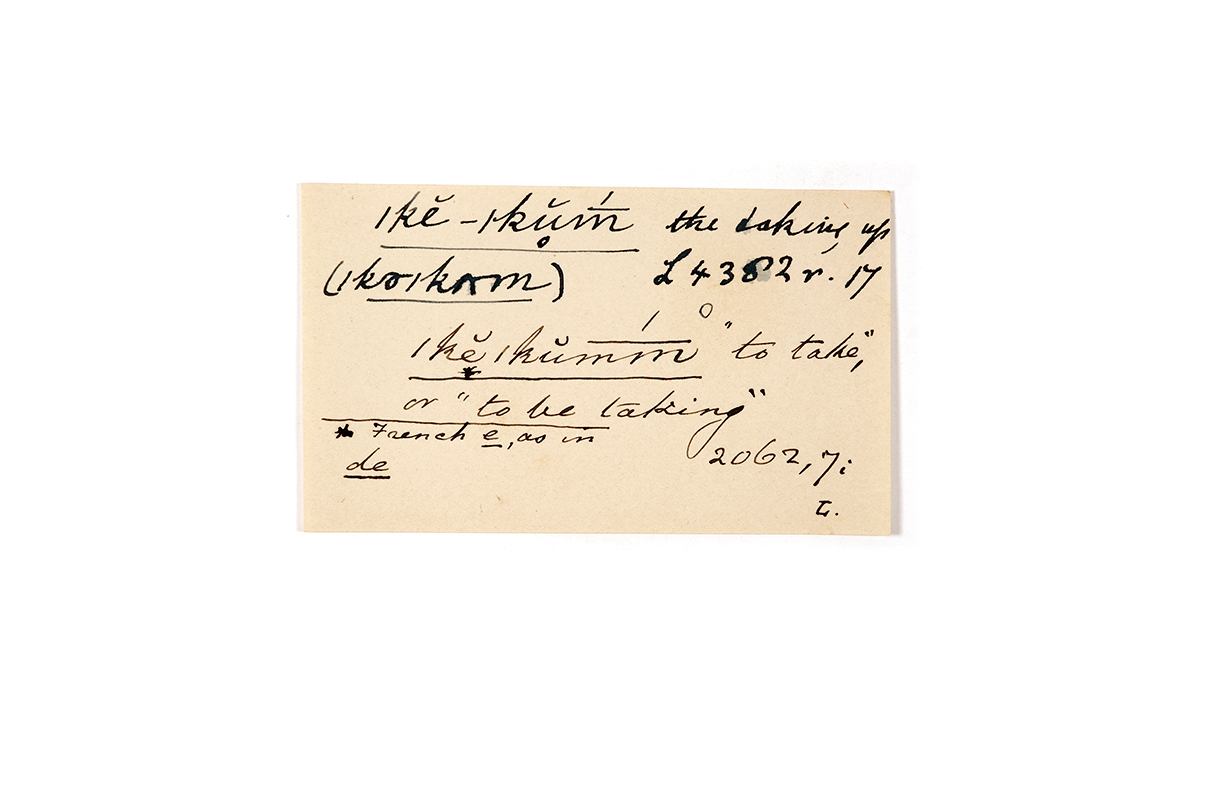 ǀkĕ-ǀkŭḿ̄ the taking up
(ǀkɤǀkʌm) L 4382 r. 17
ǀkĕǀkŭm̄ḿ̄ "to take",
* or "to be taking"
* French e, as in
de 2062, 7;
L.